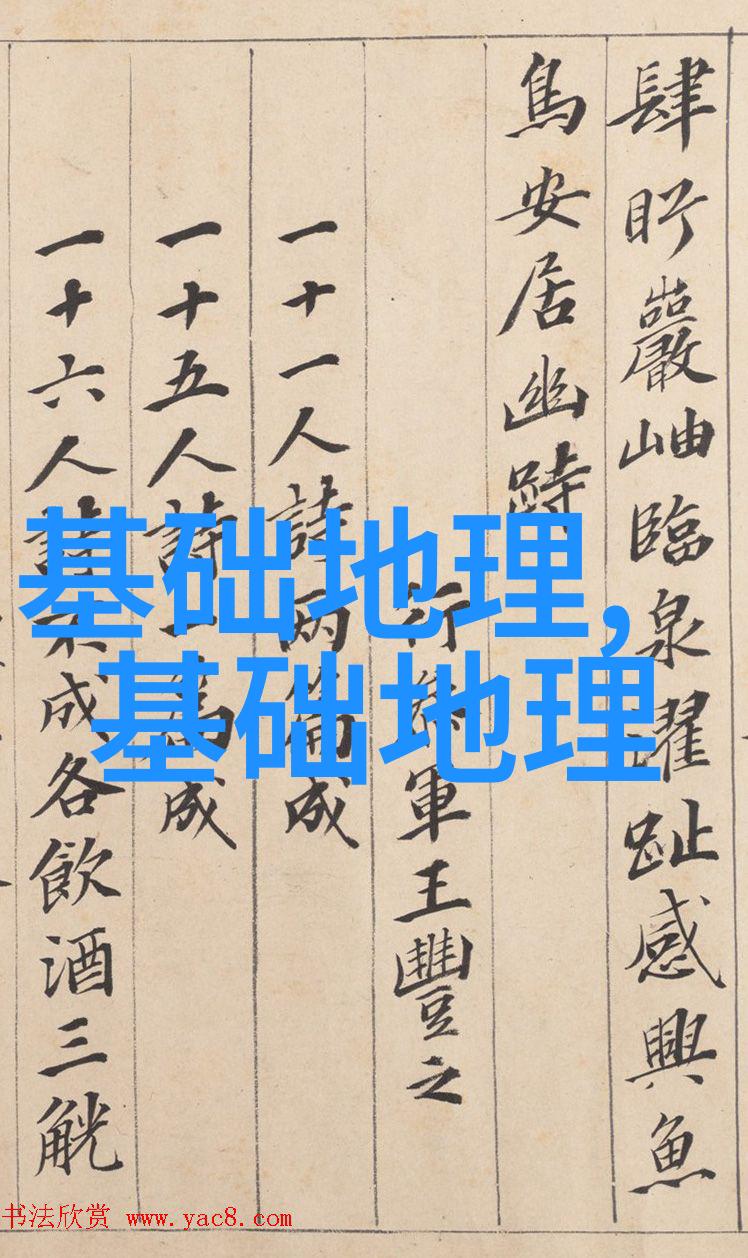 肆盻巖岫臨泉濯趾感興魚
鳥安居幽跱
行參軍王豐之
一十一人詩兩篇成
一十五人詩一篇成
一十六人詩不成各飲酒三觥
基础地理,
基础地理
书法欣赏 www.yac8.com